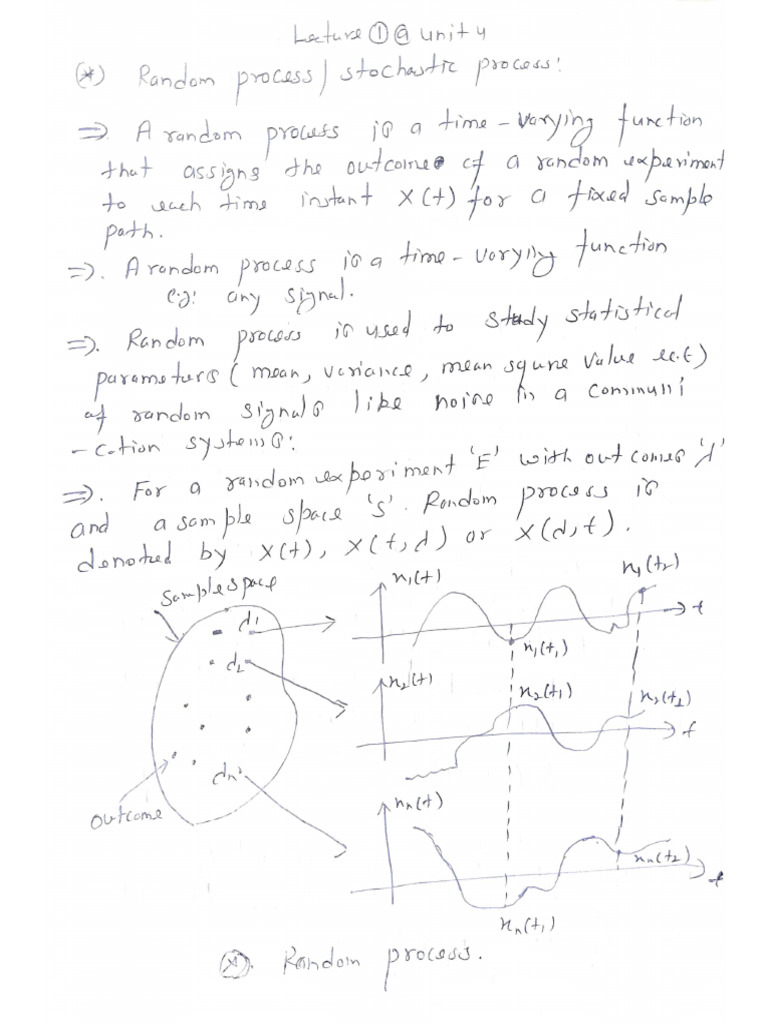 Lecture ① @ unit 4
(*) Random process / stochastic process:
⇒ A random process is a time-varying function
that assigns the outcomes of a random experiment
to each time instant X(t) for a fixed sample
path.
⇒. A random process is a time-varying function
e.g: any signal.
⇒. Random process is used to study statistical
parameters (mean, variance, mean squre value ec.t)
of random signals like noise in a communi
-cation systems:
⇒. For a random experiment 'E' with outcomes 'λ'
and a sample space 'S'. Random process is
denoted by X(t), X(t,λ) or X(λ,t).
Sample space
x₁(t)
x₁(t₂)
λ₁
t
x₁(t₁)
λ₂
x₂(t)
x₂(t₁)
x₂(t₂)
t
λn
outcome
xn(t)
xn(t₂)
t
xn(t₁)
(*). Random process.